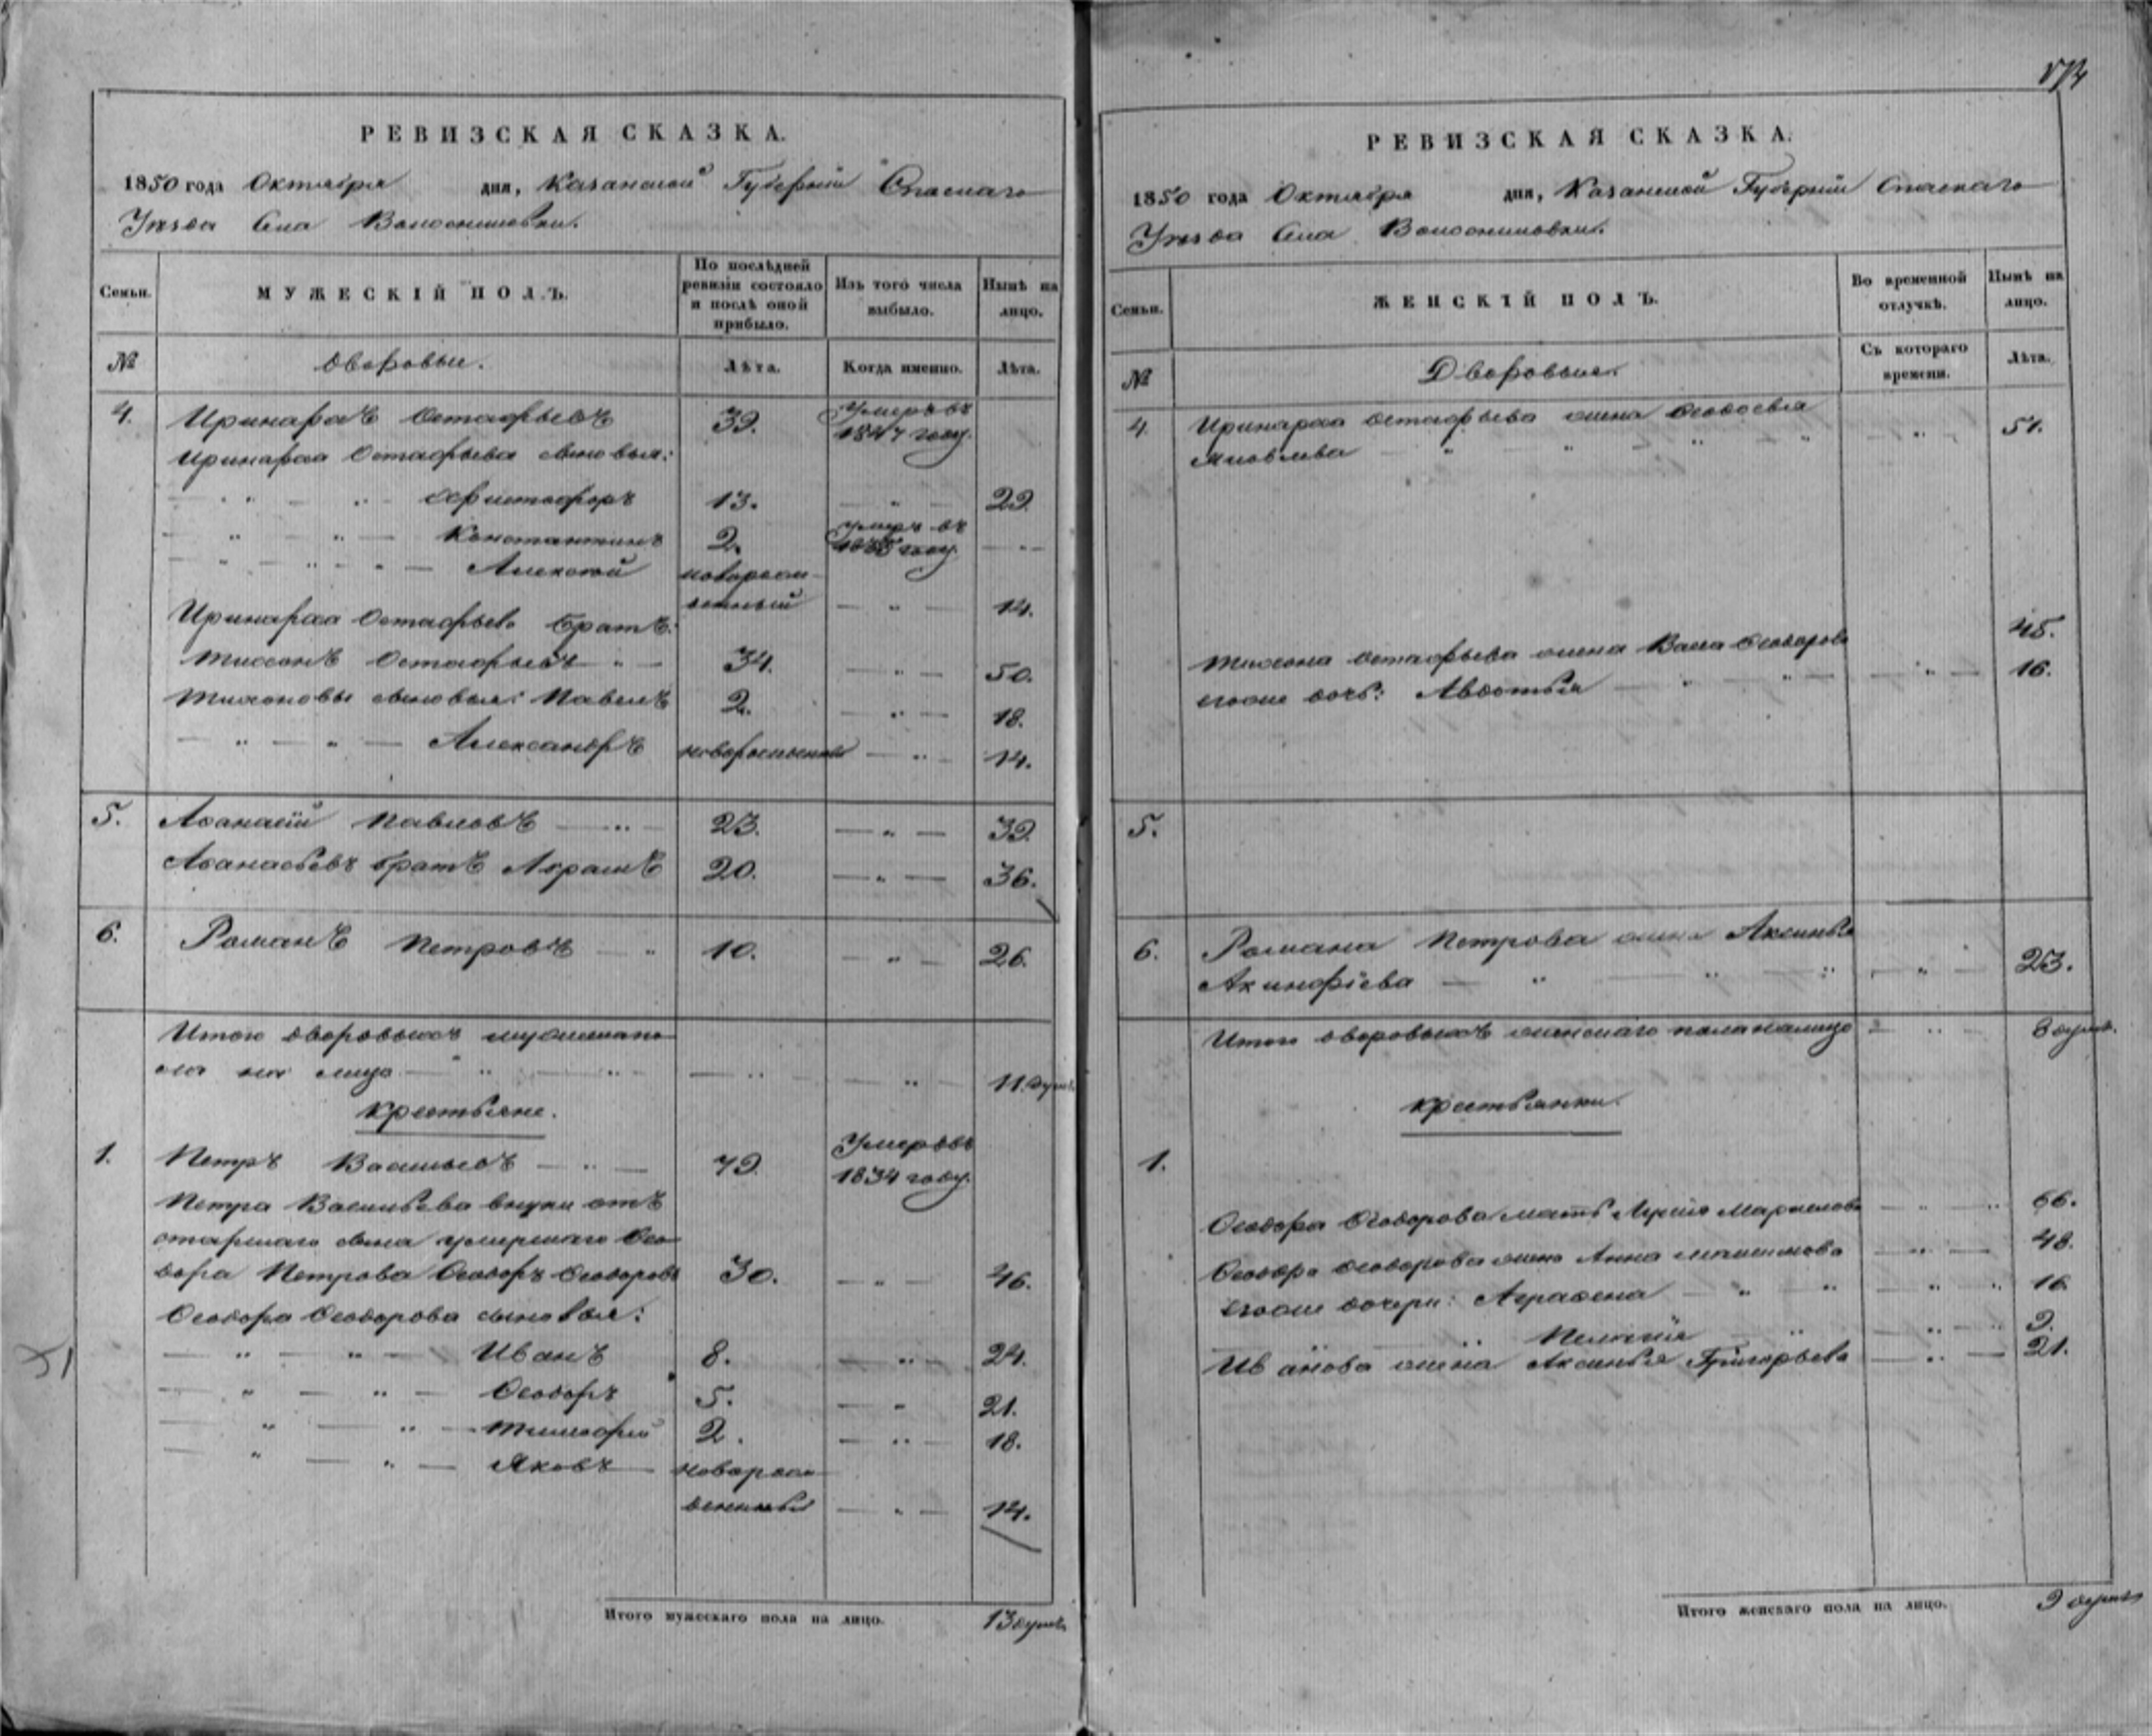 РЕВИЗСКАЯ СКАЗКА.
1850 года Октября дня, Казанской Губерніи Спаскаго
Уѣзда Села
Семьи.
МУЖЕСКІЙ ПОЛЪ.
По послѣдней ревизіи состояло и послѣ оной прибыло.
Изъ того числа выбыло.
Нынѣ на лицо.
№
дворовые.
Лѣта.
Когда именно.
Лѣта.
4. Иринархъ Остафьевъ 39. Умеръ въ 1847 году.
Иринарха Остафьева сыновья:
Христофоръ 13. 29
Константинъ 2. умеръ въ году.
Алексѣй новорож-
денный 14.
Иринарха Остафьева братъ:
Тихонъ Остафьевъ 34. 50.
Тихоновы сыновья: Павелъ 2. 18.
Александръ новорожденный 14.
5. Аѳанасій Павловъ 23. 39.
Аѳанасьевъ братъ 20. 36.
6. Романъ Петровъ 10. 26.
Итого дворовыхъ мужска по
ла на лицо 11. душъ
Крестьяне.
1. Петръ Васильевъ 79. Умеръ въ 1834 году.
Петра Васильева внуки отъ
старшаго сына умершаго Ѳео
дора Петрова Ѳеодоръ Ѳеодоровъ 30. 46.
Ѳеодора Ѳеодорова сыновья:
Иванъ 8. 24.
Ѳеодоръ 5. 21.
Тимофей 2. 18.
Яковъ новорож-
денный 14.
Итого мужескаго пола на лицо. 13 душъ
РЕВИЗСКАЯ СКАЗКА.
1850 года Октября дня, Казанской Губерніи Спаскаго
Уѣзда Села
Семьи.
ЖЕНСКІЙ ПОЛЪ.
Во временной отлучкѣ.
Нынѣ на лицо.
№
Дворовыя.
Съ котораго времени.
Лѣта.
4. Иринарха Остафьева жена Ѳедосья 51.
Яковлева
Тихона Остафьева жена Васа Ѳеодорова 45.
егоже дочь: Авдотья 16.
5.
6. Романа Петрова жена Аксинья
Акинфіева 23.
Итого дворовыхъ женскаго пола налицо 8 душъ.
Крестьянки.
1.
Ѳеодора Ѳеодорова мать 66.
Ѳеодора Ѳеодорова жена Анна Максимова 48.
егоже дочери: Аграфена 16
Пелагія 9.
Иванова жена Аксинья Григорьева 21.
Итого женскаго пола на лицо. 9 душъ